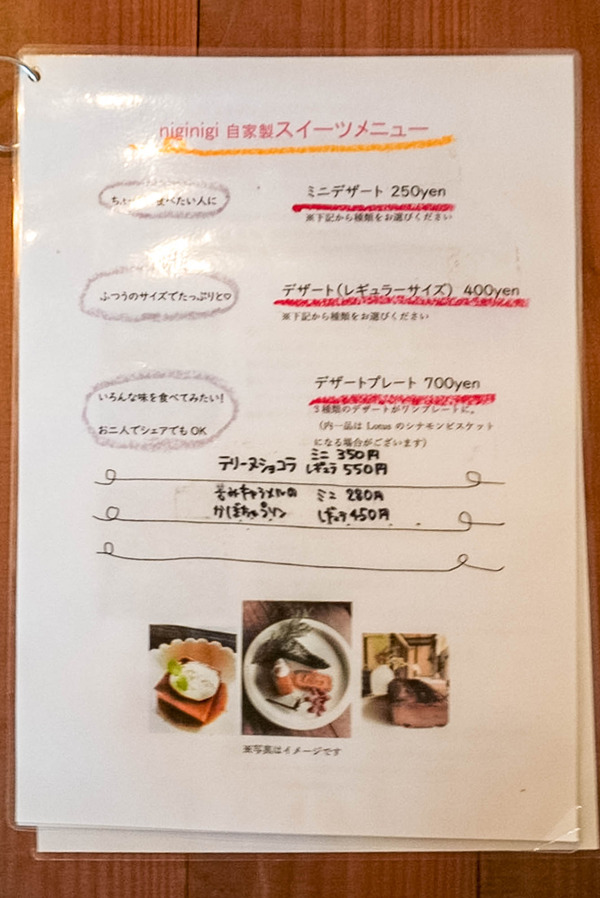 niginigi 自家製スイーツメニュー
ち 食べたい人に
ミニデザート 250yen
※下記から種類をお選びください
ふつうのサイズでたっぷりと♡
デザート(レギュラーサイズ) 400yen
※下記から種類をお選びください
いろんな味を食べてみたい!
お二人でシェアでも OK
デザートプレート 700yen
3種類のデザートがワンプレートに。
(内一品は Lotus のシナモンビスケット
になる場合がございます)
テリーヌショコラ ミニ 350円
レギュラ 550円
苦みキャラメルの ミニ 280円
かぼちゃプリン レギュラ 450円
※写真はイメージです